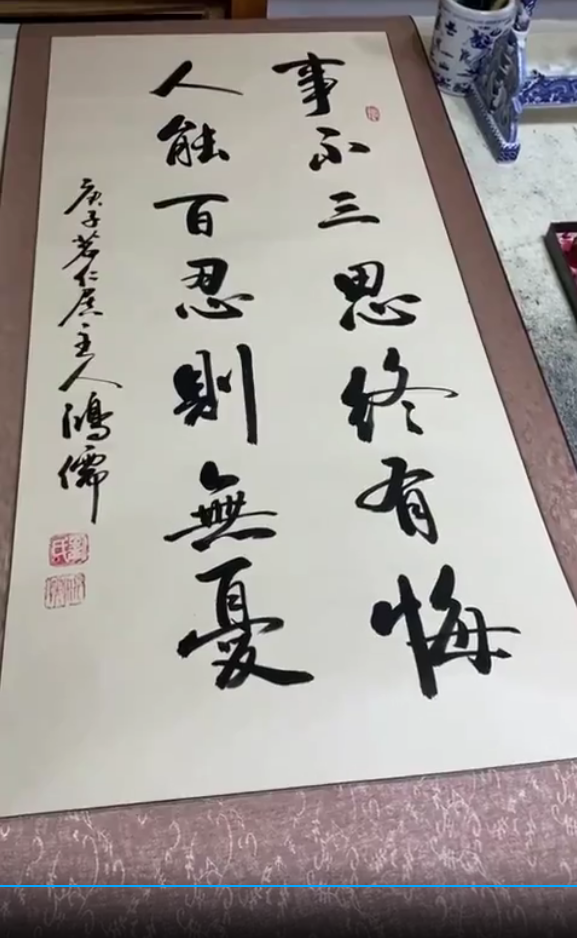 事不三思終有悔
人能百忍則無憂
庚子若仁居主人鴻儒